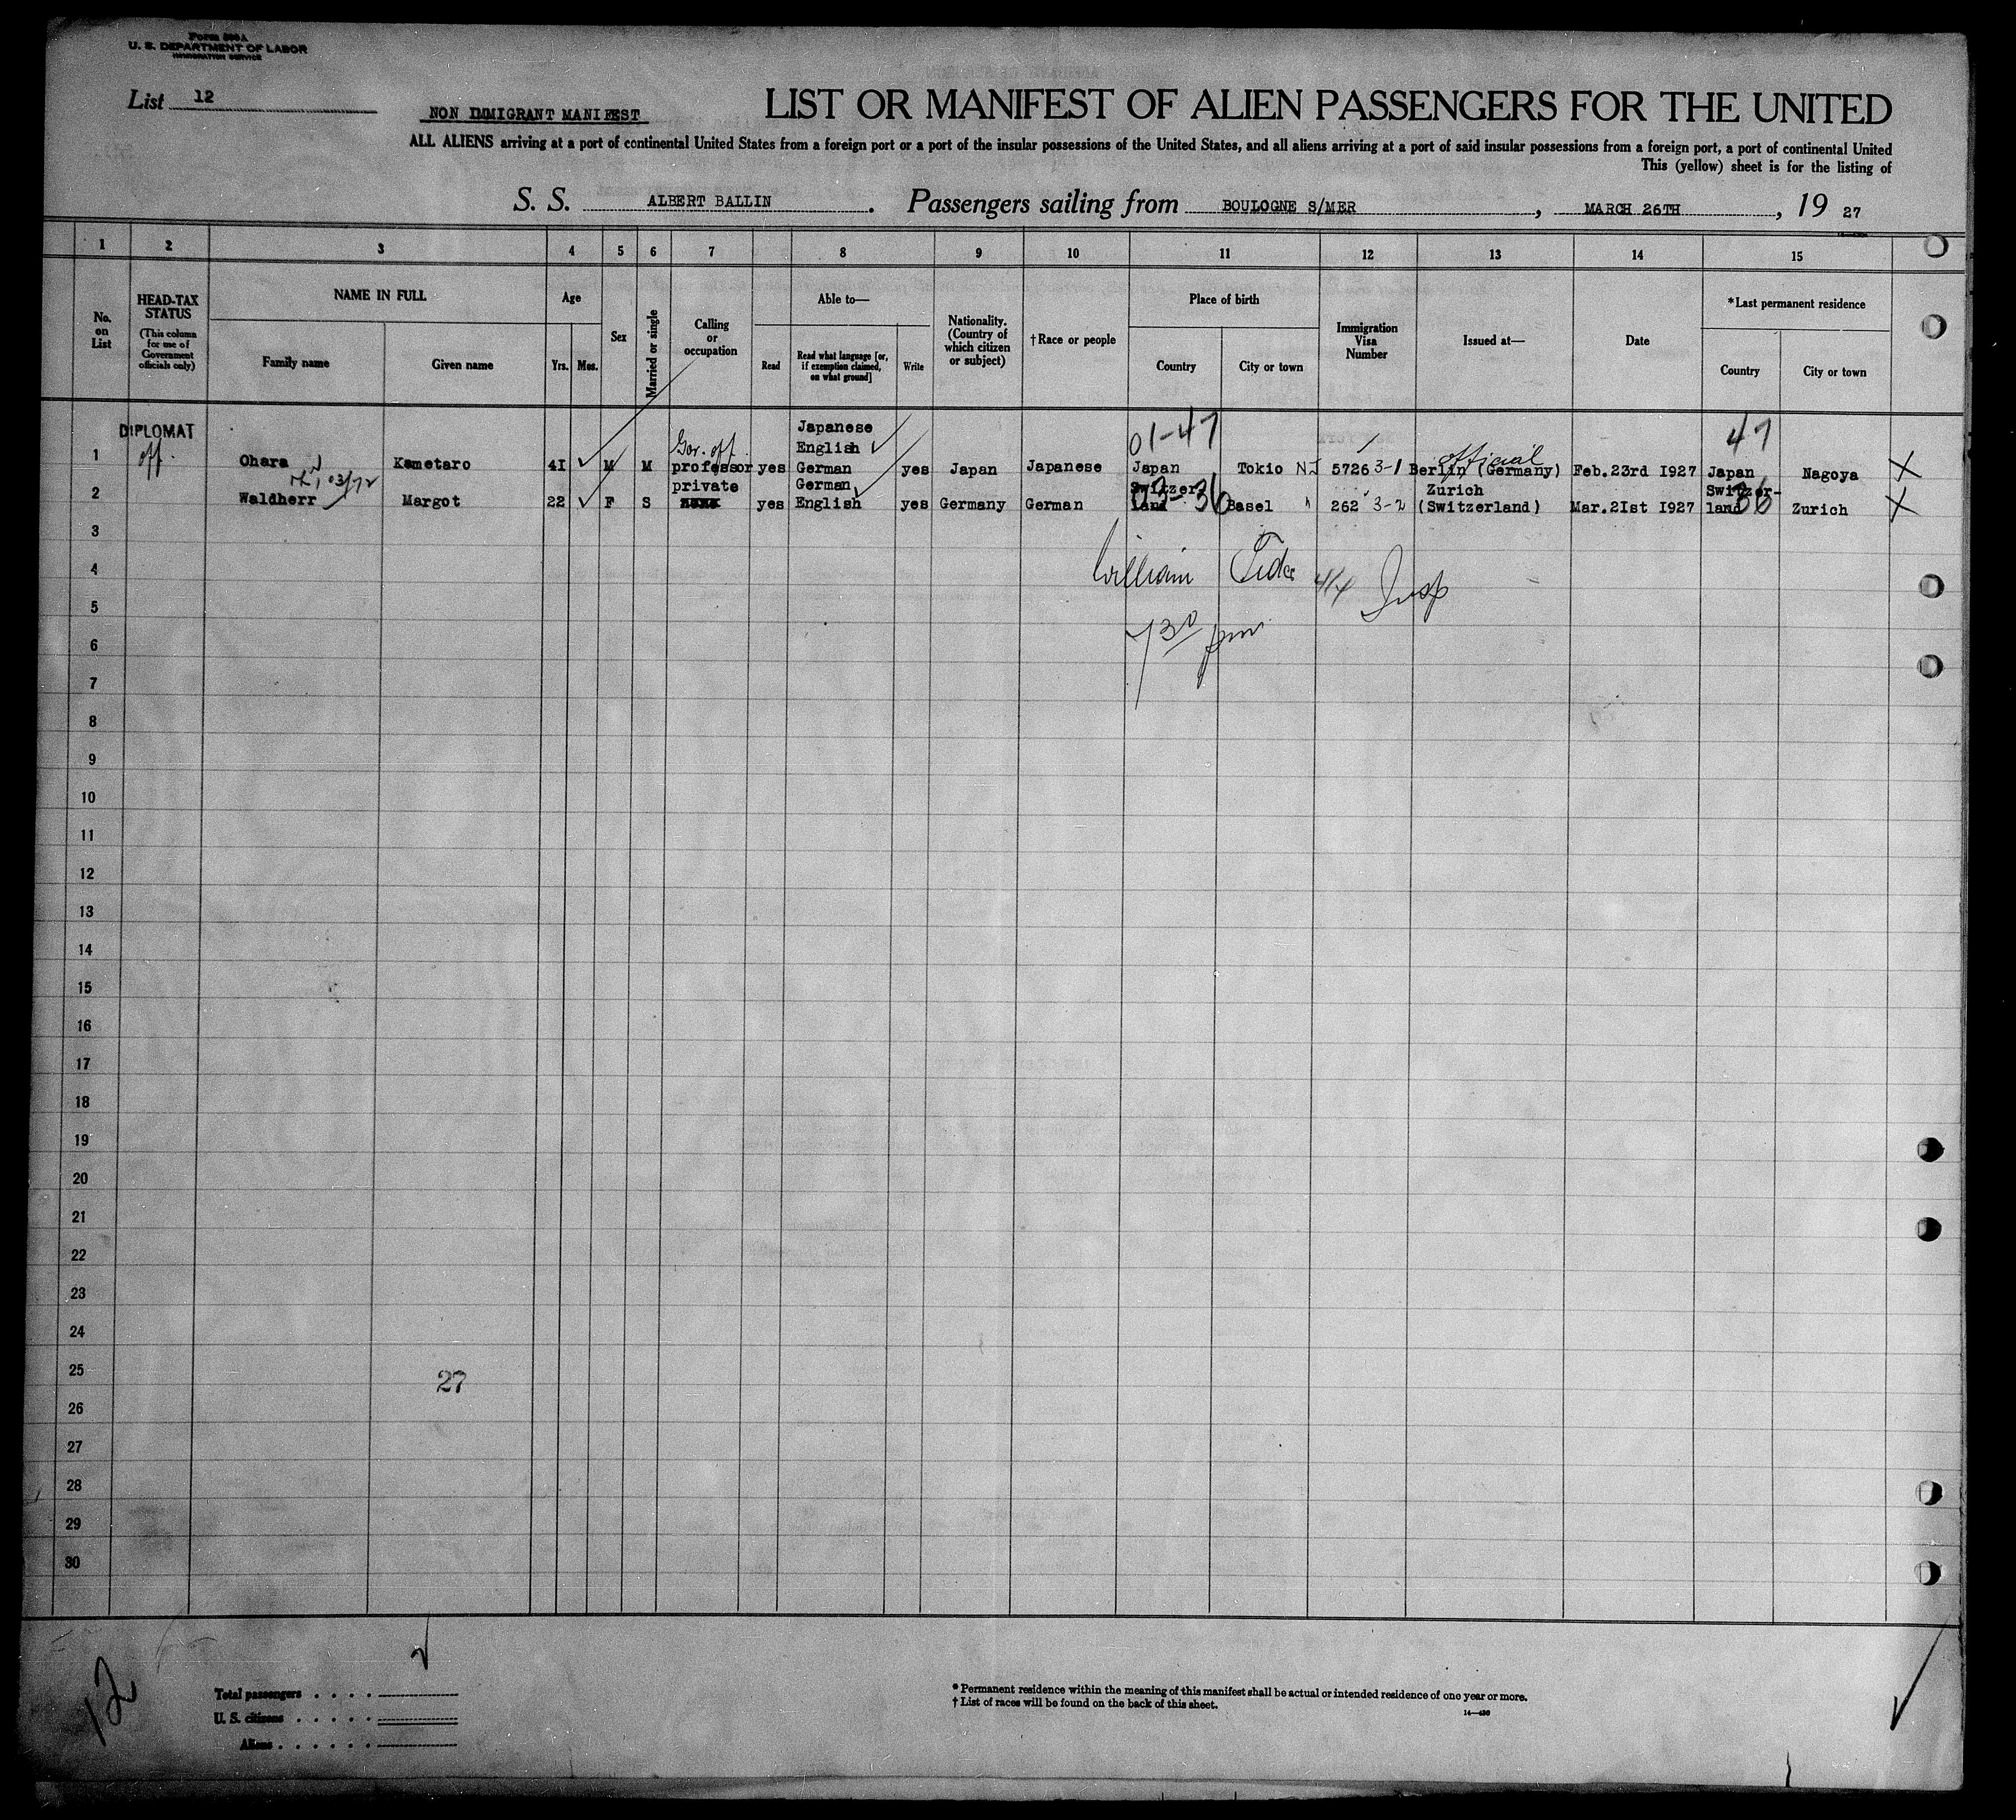 Form 500A
U. S. DEPARTMENT OF LABOR
IMMIGRATION SERVICE
List 12
NON IMMIGRANT MANIFEST
LIST OR MANIFEST OF ALIEN PASSENGERS FOR THE UNITED
ALL ALIENS arriving at a port of continental United States from a foreign port or a port of the insular possessions of the United States, and all aliens arriving at a port of said insular possessions from a foreign port, a port of continental United
This (yellow) sheet is for the listing of
S. S. ALBERT BALLIN. Passengers sailing from BOULOGNE S/MER, MARCH 26TH, 19 27
1 2 3 4 5 6 7 8 9 10 11 12 13 14 15
No. on List
HEAD-TAX STATUS
(This column for use of Government officials only)
NAME IN FULL
Family name
Given name
Age
Yrs. Mos.
Sex
Married or single
Calling or occupation
Able to—
Read
Read what language [or, if exemption claimed, on what ground]
Write
Nationality. (Country of which citizen or subject)
†Race or people
Place of birth
Country
City or town
Immigration Visa Number
Issued at—
Date
*Last permanent residence
Country
City or town
DIPLOMAT
off.
1 Ohara Kametaro 41 M M Gov. off. professor yes Japanese English German yes Japan Japanese 01-47 Japan Tokio 5726 3-1 official Berlin (Germany) Feb.23rd 1927 47 Japan Nagoya X
2 Waldherr Margot 22 F S private yes German, English yes Germany German Switzerland 36 Basel 262 3-2 Zurich (Switzerland) Mar.21st 1927 Switzer-land 36 Zurich X
3
4 William 4/4 Insp
5
6 7 30 pm
7
8
9
10
11
12
13
14
15
16
17
18
19
20
21
22
23
24
25 27
26
27
28
29
30
12
Total passengers . . . .
U. S. citizens . . . . .
Aliens . . . . . .
* Permanent residence within the meaning of this manifest shall be actual or intended residence of one year or more.
† List of races will be found on the back of this sheet.